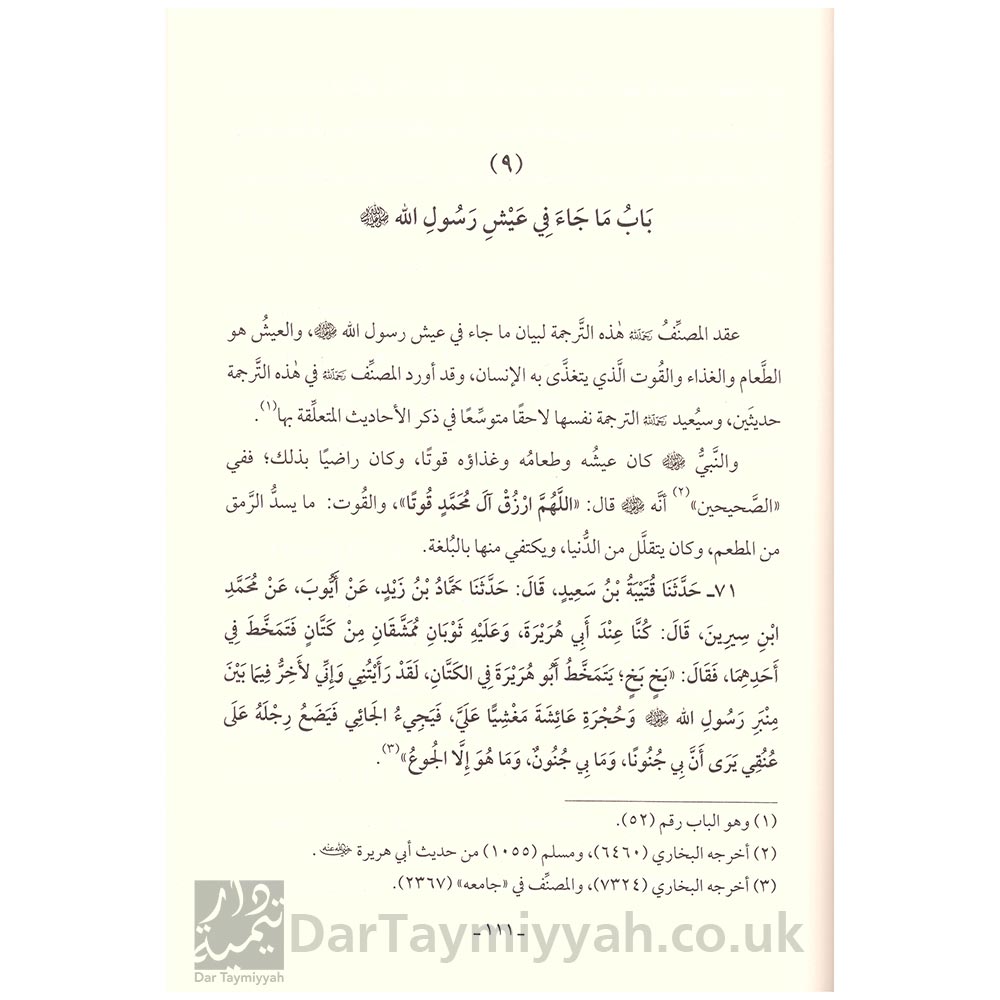 (٩)
بَابُ مَا جَاءَ فِي عَيْشِ رَسُولِ الله ﷺ
عقد المصنِّفُ رَحِمَهُ اللهُ هٰذه التَّرجمة لبيان ما جاء في عيش رسول الله ﷺ، والعيشُ هو
الطَّعام والغذاء والقُوت الَّذي يتغذَّى به الإنسان، وقد أورد المصنِّف رَحِمَهُ اللهُ في هٰذه التَّرجمة
حديثَين، وسيُعيد رَحِمَهُ اللهُ الترجمة نفسها لاحقًا متوسِّعًا في ذكر الأحاديث المتعلِّقة بها(١).
والنَّبيُّ ﷺ كان عيشُه وطعامُه وغذاؤه قوتًا، وكان راضيًا بذلك؛ ففي
«الصَّحيحين»(٢) أنَّه ﷺ قال: «اللَّهُمَّ ارْزُقْ آلَ مُحَمَّدٍ قُوتًا»، والقُوت: ما يسدُّ الرَّمق
من المطعم، وكان يتقلَّل من الدُّنيا، ويكتفي منها بالبُلغة.
٧١ـ حَدَّثَنَا قُتَيْبَةُ بْنُ سَعِيدٍ، قَالَ: حَدَّثَنَا حَمَّادُ بْنُ زَيْدٍ، عَنْ أَيُّوبَ، عَنْ مُحَمَّدِ
ابْنِ سِيرِينَ، قَالَ: كُنَّا عِنْدَ أَبِي هُرَيْرَةَ، وَعَلَيْهِ ثَوْبَانِ مُمَشَّقَانِ مِنْ كَتَّانٍ فَتَمَخَّطَ فِي
أَحَدِهِمَا، فَقَالَ: «بَخٍ بَخٍ؛ يَتَمَخَّطُ أَبُو هُرَيْرَةَ فِي الكَتَّانِ، لَقَدْ رَأَيْتُنِي وَإِنِّي لأَخِرُّ فِيمَا بَيْنَ
مِنْبَرِ رَسُولِ الله ﷺ وَحُجْرَةِ عَائِشَةَ مَغْشِيًّا عَلَيَّ، فَيَجِيءُ الجَائِي فَيَضَعُ رِجْلَهُ عَلَى
عُنُقِي يَرَى أَنَّ بِي جُنُونًا، وَمَا بِي جُنُونٌ، وَمَا هُوَ إِلَّا الجُوعُ»(٣).
(١) وهو الباب رقم (٥٢).
(٢) أخرجه البخاري (٦٤٦٠)، ومسلم (١٠٥٥) من حديث أبي هريرة رَضِيَ اللهُ عَنْهُ.
(٣) أخرجه البخاري (٧٣٢٤)، والمصنِّف في «جامعه» (٢٣٦٧).
ـ ١١١ ـ
دار تيمية
Dar Taymiyyah
DarTaymiyyah.co.uk